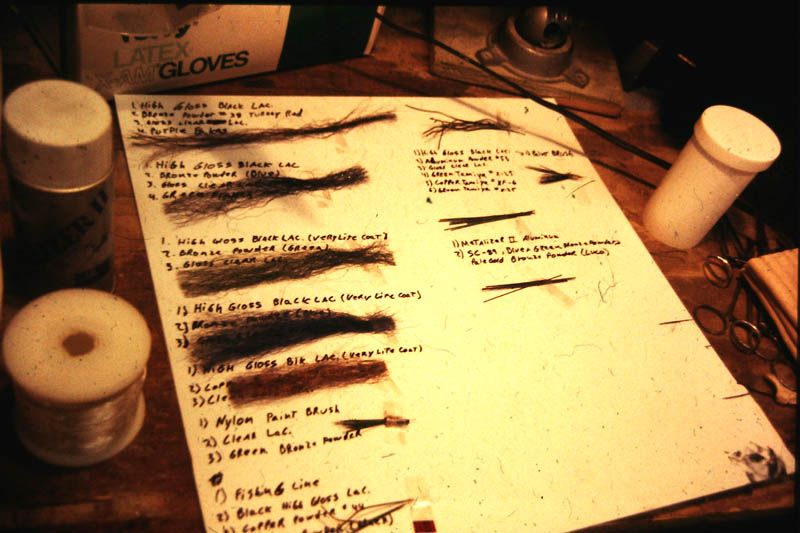 LATEX
EXAM GLOVES
1. HIGH GLOSS BLACK LAC.
2. BRONZE POWDER # 39 TURKEY RED
3. GLOSS CLEAR LAC.
4. PURPLE
1. HIGH GLOSS BLACK LAC
2. BRONZE POWDER (BLUE)
3. GLOSS CLEAR
4. GREEN
1. HIGH GLOSS BLACK LAC. (VERY LITE COAT)
2. BRONZE POWDER (GREEN)
3. GLOSS CLEAR LAC
1) HIGH GLOSS BLACK LAC (VERY LITE COAT)
2) BRONZE POWDER
3)
1) HIGH GLOSS BLK LAC. (VERY LITE COAT)
2) COPP
3) CLE
1) NYLON PAINT BRUSH
2) CLEAR LAC.
3) GREEN BRONZE POWDER
1) FISHING LINE
2) BLACK HIGH GLOSS LAC.
3) COPPER POWDER # 44
POWDER (BLACK)
1) HIGH GLOSS BLACK LAC. PAINT BRUSH
2) ALUMINUM POWDER
3) GLOSS CLEAR LAC
4) GREEN TAMIYA # X-25
5) COPPER TAMIYA # XF-6
6) GREEN TAMIYA # X-25
1) METALIZER II ALUMINUM
2) SC-89, GREEN POWDERS
PALE GOLD BRONZE POWDER (LUCO)